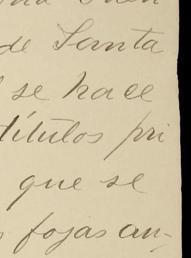 de Santa
se hace
títulos pri
que se
fojas an-